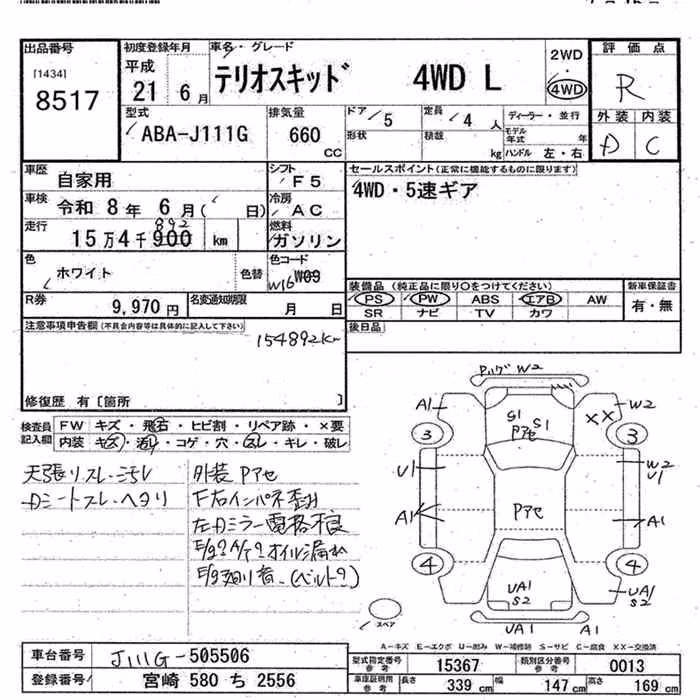 出品番号
[1434]
8517
初度登録年月
平成
21 6月
車名・グレード
テリオスキッド 4WD L
2WD
・
4WD
評価点
R
外装 内装
D C
型式
ABA-J111G
排気量
660 CC
ドア 5
定員 4人
形状
積載 kg
ディーラー・並行
モデル年式 年
ハンドル 左・右
車歴
自家用
シフト
F5
車検 令和 8年 6月( 日)
冷房
AC
走行
892
15万4千900 km
燃料
ガソリン
色
ホワイト
色替
色コード
W16 W09
R券 9,970円
名変通知期限 月 日
セールスポイント(正常に機能するものに限ります)
4WD・5速ギア
装備品(純正品に限り○をつけてください)
PS PW ABS エアB AW
SR ナビ TV カワ
新車保証書
有・無
後日品
注意事項申告欄(不具合内容等は具体的に記入して下さい)
154892km
修復歴 有〔箇所 〕
検査員記入欄
FW キズ・飛石・ヒビ割・リペア跡・×要
内装 キズ・汚れ・コゲ・穴・スレ・キレ・破レ
天張リスレ・ニゴレ
Dシートスレ・ヘタリ
外装 Pアセ
F右インパネ歪み
左Dミラー電格不良
オイル漏れ
(ベルト?)
W2
A1
W2
S1
S1
Pアセ
XX
3
3
U1
W2
U1
A1
Pアセ
A1
4
4
UA1
S2
UA1
S2
UA1
A1
スペア
A-キズ E-エクボ U-凹み W-補修跡 S-サビ C-腐食 XX-交換済
車台番号 J111G-505506
登録番号 宮崎 580 ち 2556
型式指定番号 参考 15367
類別区分番号 参考 0013
車庫証明用 参考
長さ 339cm
幅 147cm
高さ 169cm